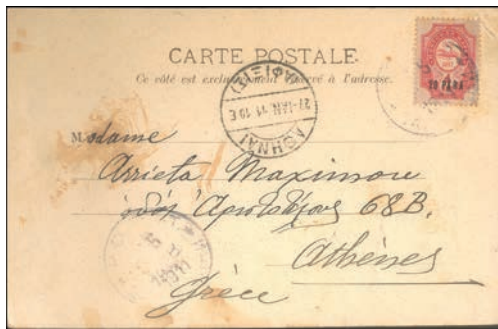 CARTE POSTALE.
Ce côté est exclusivement réservé à l'adresse.
(ΑΦΙΞΙΣ)
27 ΙΑΝ. 11 10 Ε
ΑΘΗΝΑΙ
Madame
Arrieta Maximou
ὁδός Ἀριστοτέλους 68B.
Athènes
Grèce
1911